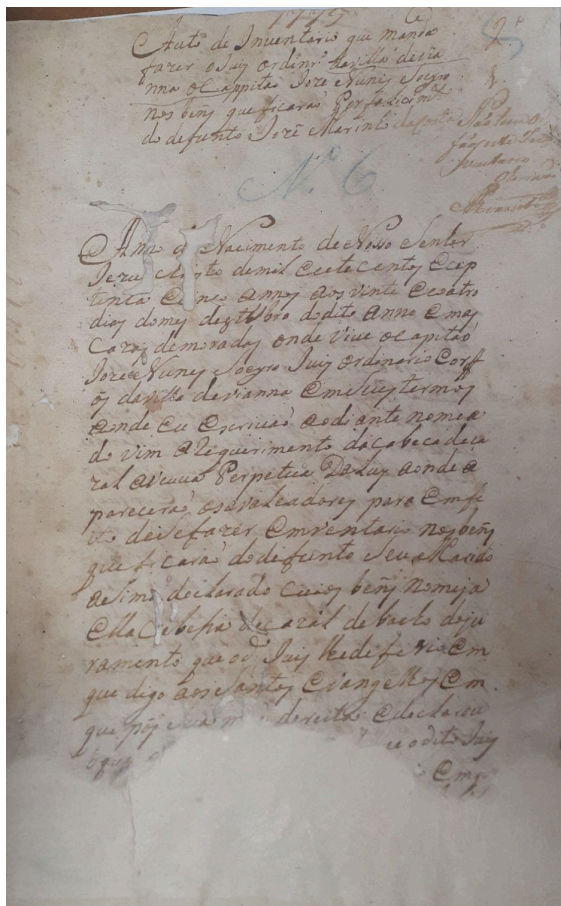 1775
Auto de Inventario que manda
fazer o Juis ordinr.º da villa de via
nna o Cappitão Joze Nunes Soeyro
nos beñs que ficarão por falicim.to
do defunto Joze Marinho da Costa
N.º 6
Anno do Nacimento de Nosso Senhor
Jezus Christo de mil e cete centos e cep
tenta e sinco annos aos vinte e coatro
dias do mes de 7bro do dito anno em as
cazas de moradas onde vive o Capitão
Joze Nunes Soeyro Juis ordinario
da villa de vianna em seus termos
aonde eu escrivão ao diante nomea
do vim a Requerimento da cabeca de ca
zal a veuva Perpetua Da Luz aonde a
parecerão os avaleadores para em fe
ito de se fazer emventario nos beñs
que ficarão do defunto seu Marido
asima declarado cujos beñs nomeja
ella cabessa de cazal debacho de ju
ramento que o d.º Juis lhe diferio em
que digo aos Santos Evangelhos em
que pós sua mão direita e declarou
o dito Juis